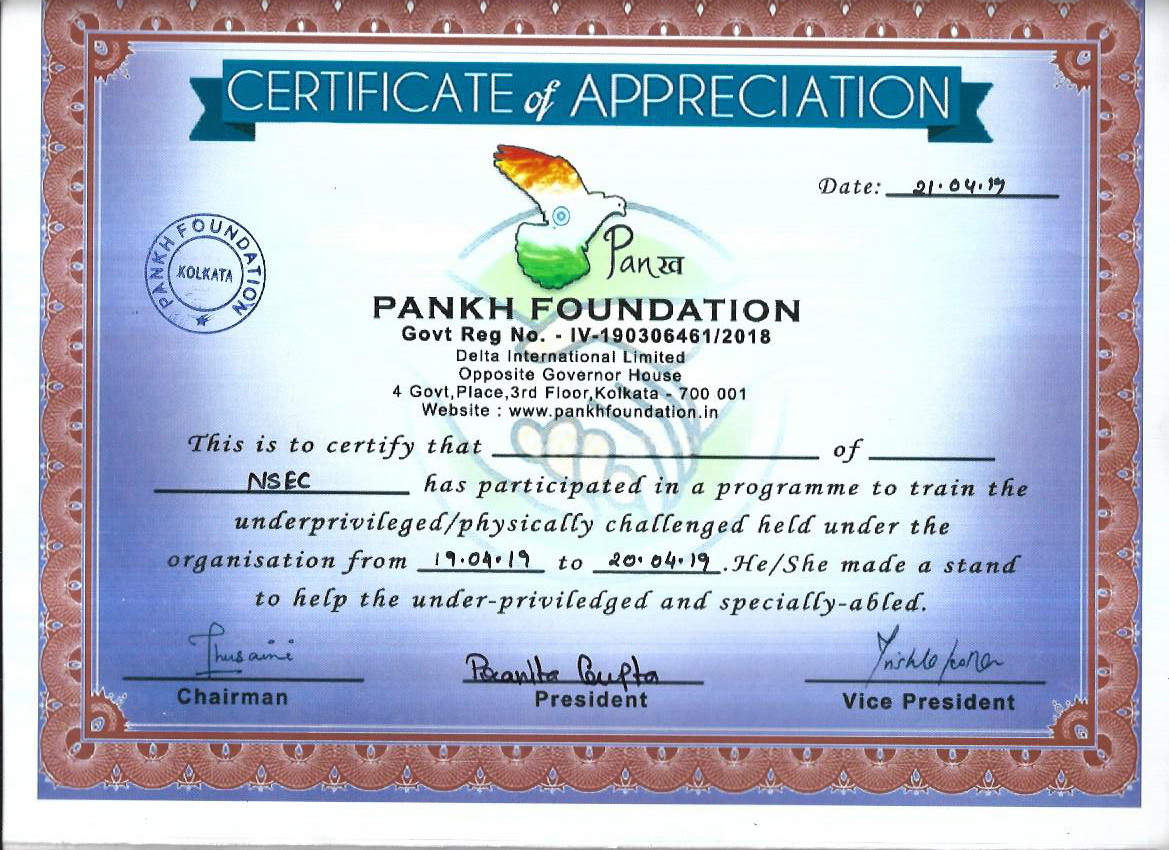 CERTIFICATE of APPRECIATION
Date: 21.04.19
PANKH FOUNDATION
KOLKATA
Panख
PANKH FOUNDATION
Govt Reg No. - IV-190306461/2018
Delta International Limited
Opposite Governor House
4 Govt,Place,3rd Floor,Kolkata - 700 001
Website : www.pankhfoundation.in
This is to certify that of
NSEC has participated in a programme to train the
underprivileged/physically challenged held under the
organisation from 19.04.19 to 20.04.19.He/She made a stand
to help the under-priviledged and specially-abled.
Gupta
Chairman President Vice President